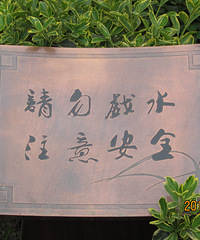 請勿戲水
注意安全
20